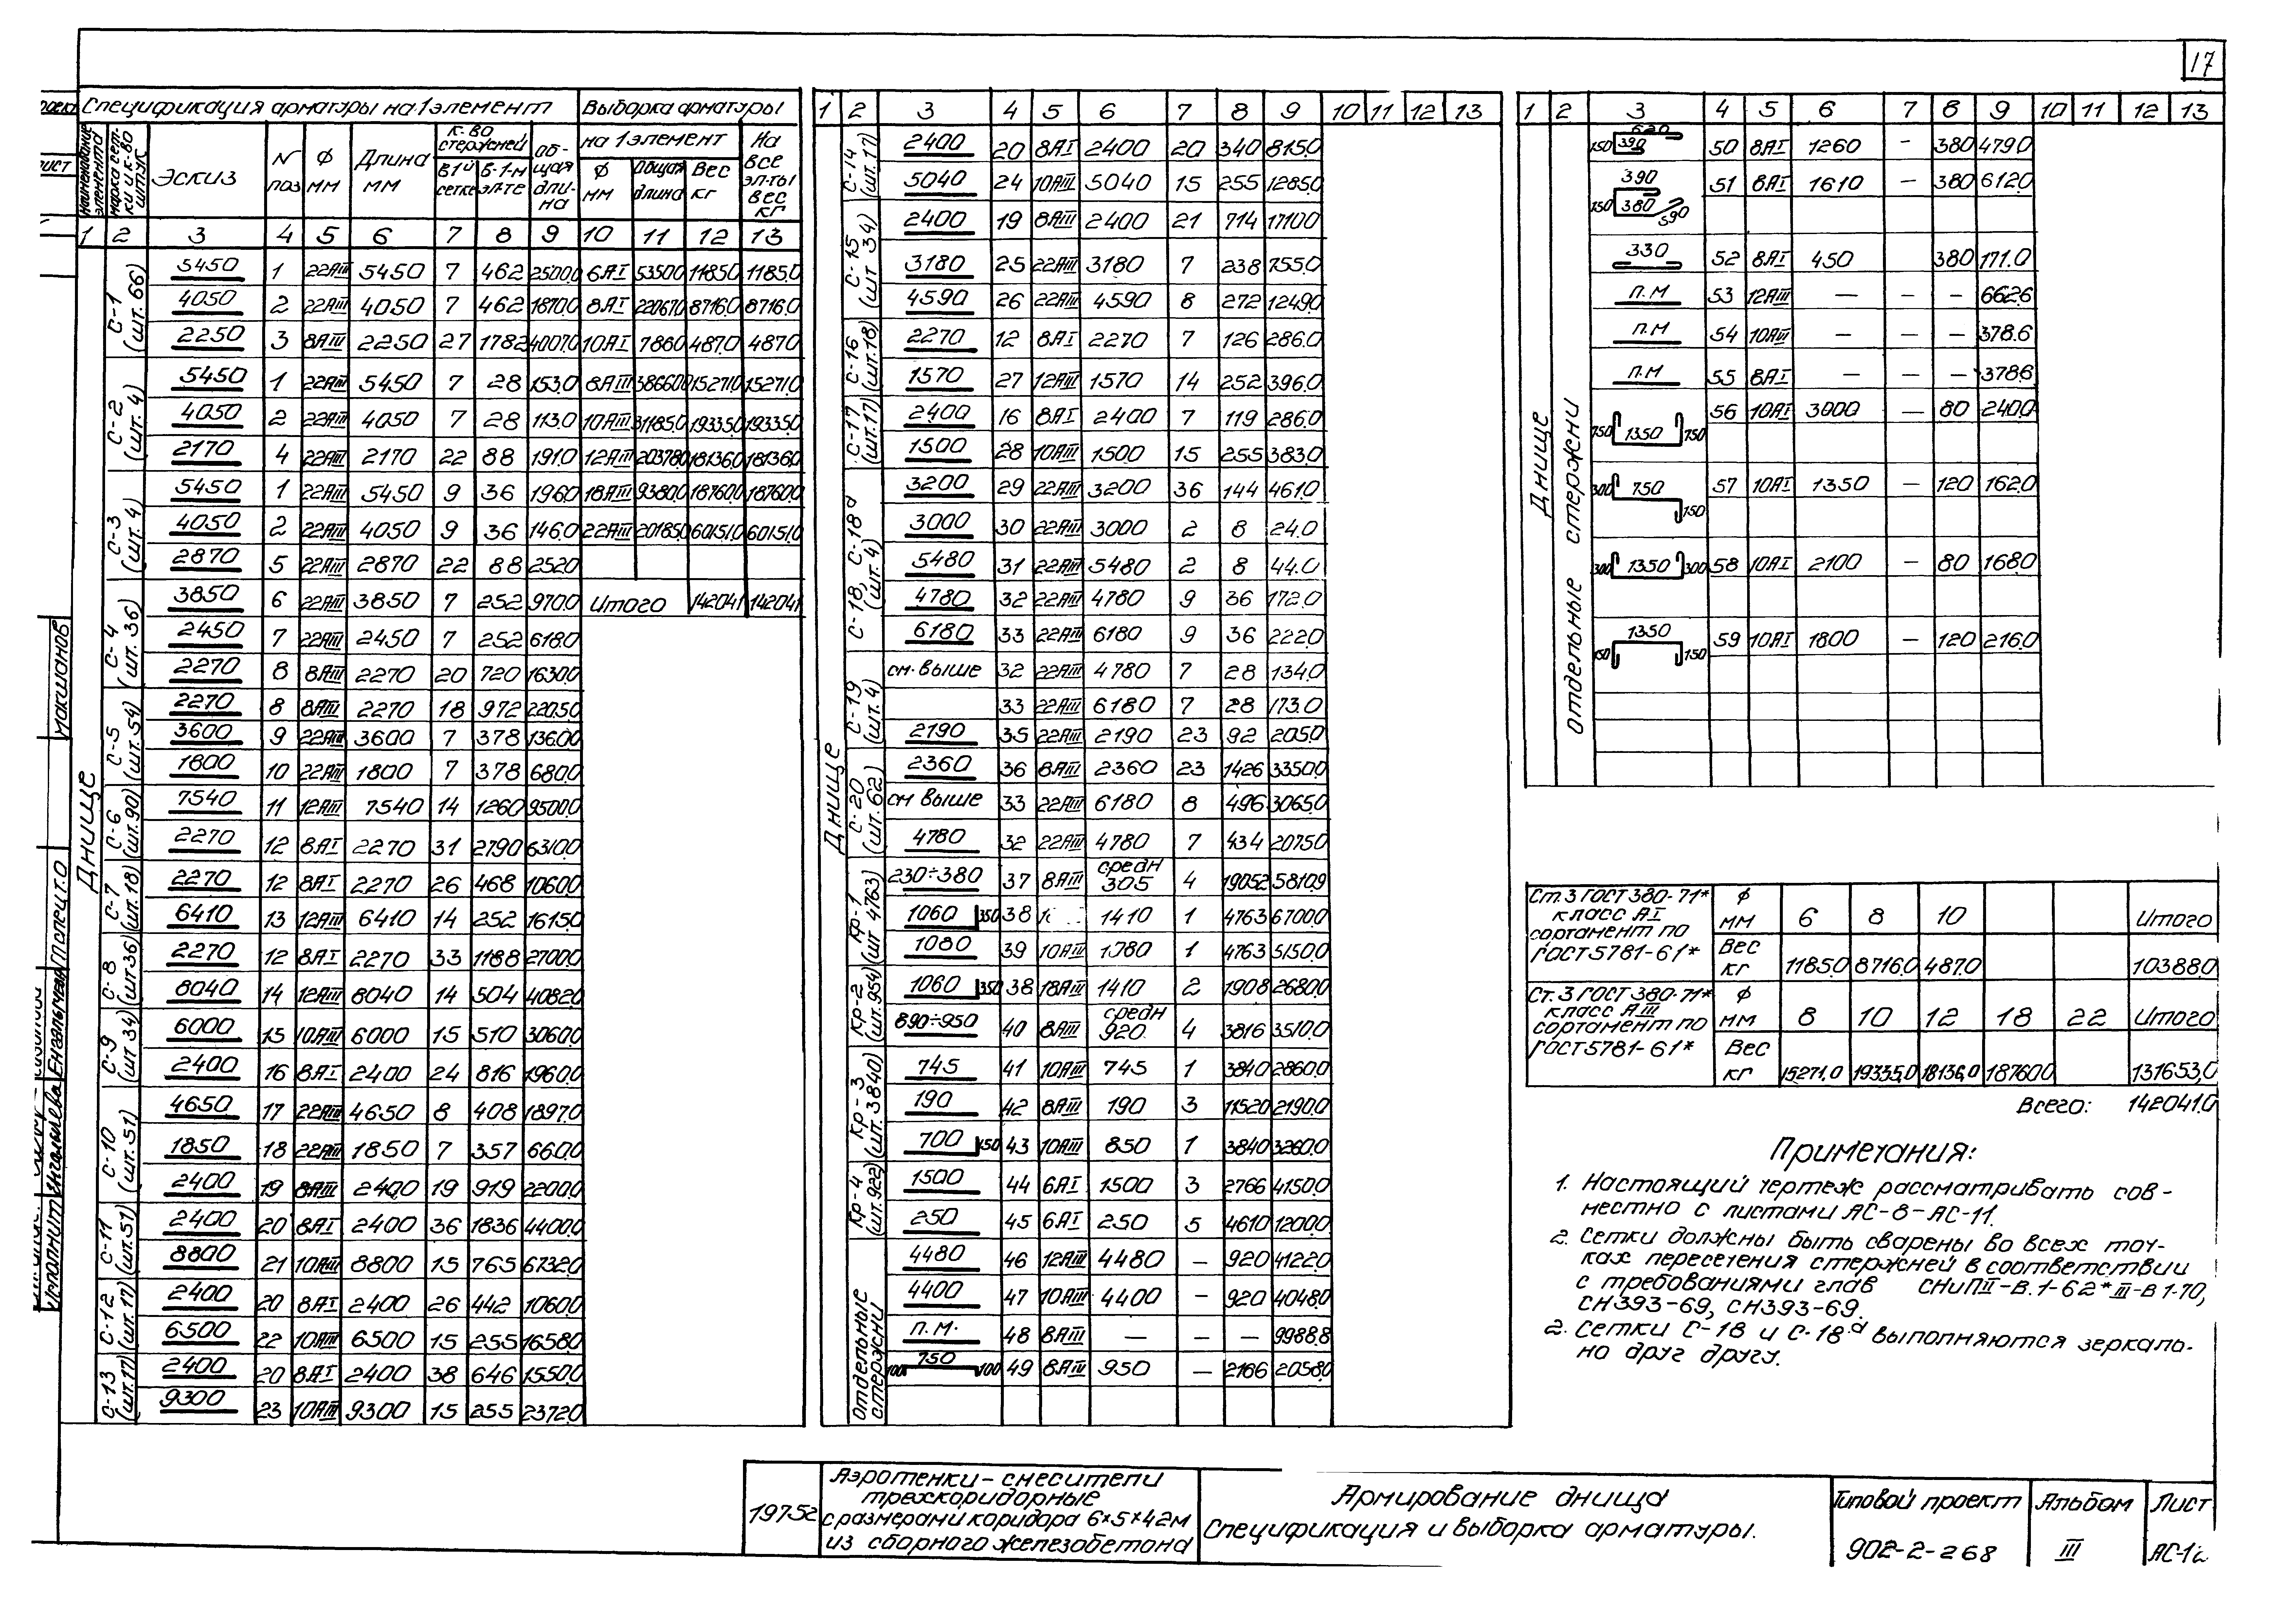 17
Спецификация арматуры на 1 элемент | Выборка арматуры
Наименование элемента | Марка сетки и к-во штук | Эскиз | N поз | Ф мм | Длина мм | К-во стержней | в 1й сетке | в 1-м эл-те | Общая длина | на 1 элемент | Ф мм | Общая длина | Вес кг | На все эл-ты вес кг
1 2 3 4 5 6 7 8 9 10 11 12 13
Днище
С-1 (шт. 66)
5450 1 22АIII 5450 7 462 2500,0 6АI 5350,0 1185,0 1185,0
4050 2 22АIII 4050 7 462 1870,0 8АI 22067,0 8716,0 8716,0
2250 3 8АIII 2250 27 1782 4007,0 10АI 786,0 487,0 487,0
С-2 (шт. 4)
5450 1 22АIII 5450 7 28 153,0 8АIII 38660,0 15271,0 15271,0
4050 2 22АIII 4050 7 28 113,0 10АIII 31185,0 19335,0 19335,0
2170 4 22АIII 2170 22 88 191,0 12АIII 20378,0 18136,0 18136,0
С-3 (шт. 4)
5450 1 22АIII 5450 9 36 196,0 18АIII 9380,0 18760,0 18760,0
4050 2 22АIII 4050 9 36 146,0 22АIII 20185,0 60151,0 60151,0
2870 5 22АIII 2870 22 88 252,0
С-4 (шт. 36)
3850 6 22АIII 3850 7 252 970,0 Итого 142041 142041
2450 7 22АIII 2450 7 252 618,0
2270 8 8АIII 2270 20 720 1630,0
С-5 (шт. 54)
2270 8 8АIII 2270 18 972 2205,0
3600 9 22АIII 3600 7 378 1360,0
1800 10 22АIII 1800 7 378 680,0
С-6 (шт. 90)
7540 11 12АIII 7540 14 1260 9500,0
2270 12 8АI 2270 31 2790 6310,0
С-7 (шт. 18)
2270 12 8АI 2270 26 468 1060,0
6410 13 12АIII 6410 14 252 1615,0
С-8 (шт 36)
2270 12 8АI 2270 33 1188 2700,0
8040 14 12АIII 8040 14 504 4082,0
С-9 (шт 34)
6000 15 10АIII 6000 15 510 3060,0
2400 16 8АI 2400 24 816 1960,0
С-10 (шт. 51)
4650 17 22АIII 4650 8 408 1897,0
1850 18 22АIII 1850 7 357 660,0
2400 19 8АIII 2400 19 919 2200,0
С-11 (шт. 51)
2400 20 8АI 2400 36 1836 4400,0
8800 21 10АIII 8800 15 765 6732,0
С-12 (шт. 17)
2400 20 8АI 2400 26 442 1060,0
6500 22 10АIII 6500 15 255 1658,0
С-13 (шт. 17)
2400 20 8АI 2400 38 646 1550,0
9300 23 10АIII 9300 15 255 2372,0
1 2 3 4 5 6 7 8 9 10 11 12 13
Днище
С-14 (шт. 17)
2400 20 8АI 2400 20 340 815,0
5040 24 10АIII 5040 15 255 1285,0
С-15 (шт 34)
2400 19 8АIII 2400 21 714 1710,0
3180 25 22АIII 3180 7 238 755,0
4590 26 22АIII 4590 8 272 1249,0
С-16 (шт. 18)
2270 12 8АI 2270 7 126 286,0
1570 27 12АIII 1570 14 252 396,0
С-17 (шт. 17)
2400 16 8АI 2400 7 119 286,0
1500 28 10АIII 1500 15 255 383,0
С-18, С-18а (шт. 4)
3200 29 22АIII 3200 36 144 461,0
3000 30 22АIII 3000 2 8 24.0
5480 31 22АIII 5480 2 8 44.0
4780 32 22АIII 4780 9 36 172.0
6180 33 22АIII 6180 9 36 222,0
С-19 (шт. 4)
см. выше 32 22АIII 4780 7 28 134,0
33 22АIII 6180 7 28 173.0
2190 35 22АIII 2190 23 92 205,0
С-20 (шт. 62)
2360 36 8АIII 2360 23 1426 3350,0
см выше 33 22АIII 6180 8 496 3065,0
4780 32 22АIII 4780 7 434 2075,0
Кр-1 (шт 4763)
230÷380 37 8АIII средн 305 4 19052 5810,9
1060 350 38 1 1410 1 4763 6700,0
1080 39 10АIII 1080 1 4763 5150,0
Кр-2 (шт. 954)
1060 350 38 18АIII 1410 2 1908 2680,0
890÷950 40 8АIII средн 920. 4 3816 3510,0
Кр-3 (шт. 3840)
745 41 10АIII 745 1 3840 2860,0
190 42 8АIII 190 3 11520 2190,0
700 150 43 10АIII 850 1 3840 3260,0
Кр-4 (шт. 922)
1500 44 6АI 1500 3 2766 4150,0
250 45 6АI 250 5 4610 1200,0
Отдельные стержни
4480 46 12АIII 4480 — 920 4122,0
4400 47 10АIII 4400 — 920 4048,0
п.м. 48 8АIII — — — 9988.8
100 750 100 49 8АIII 950 — 2166 2058,0
1 2 3 4 5 6 7 8 9 10 11 12 13
Днище
Отдельные стержни
150 390 620 50 8АI 1260 — 380 479,0
390 150 380 590 51 8АI 1610 — 380 612,0
330 52 8АI 450 380 171.0
п.м 53 12АIII — — — 662,6
п.м 54 10АIII — — — 378.6
п.м 55 8АI — — — 378,6
750 1350 750 56 10АI 3000 — 80 240,0
300 750 150 57 10АI 1350 — 120 162,0
300 1350 300 58 10АI 2100 — 80 168,0
1350 150 150 59 10АI 1800 — 120 216,0
Ст.3 ГОСТ 380-71* класс АI сортамент по ГОСТ 5781-61*
Ф мм 6 8 10 Итого
Вес кг 1185,0 8716,0 487,0 10388,0
Ст. 3 ГОСТ 380-71* класс АIII сортамент по ГОСТ 5781-61*
Ф мм 8 10 12 18 22 Итого
Вес кг 15271,0 19335,0 18136,0 18760,0 131653,0
Всего: 142041,0
Примечания:
1. Настоящий чертеж рассматривать сов-
местно с листами АС-8-АС-11.
2. Сетки должны быть сварены во всех точ-
ках пересечения стержней в соответствии
с требованиями глав СНиПII-В.1-62* III-В 1-70,
СН393-69, СН393-69.
2. Сетки С-18 и С-18а выполняются зеркаль-
но друг другу.
1975г
Аэротенки-смесители
трехкоридорные
с размерами коридора 6×5×42м
из сборного железобетона
Армирование днища
Спецификация и выборка арматуры.
Типовой проект
902-2-268
Альбом
III
Лист
АС-12
Исполнит
Макшанов